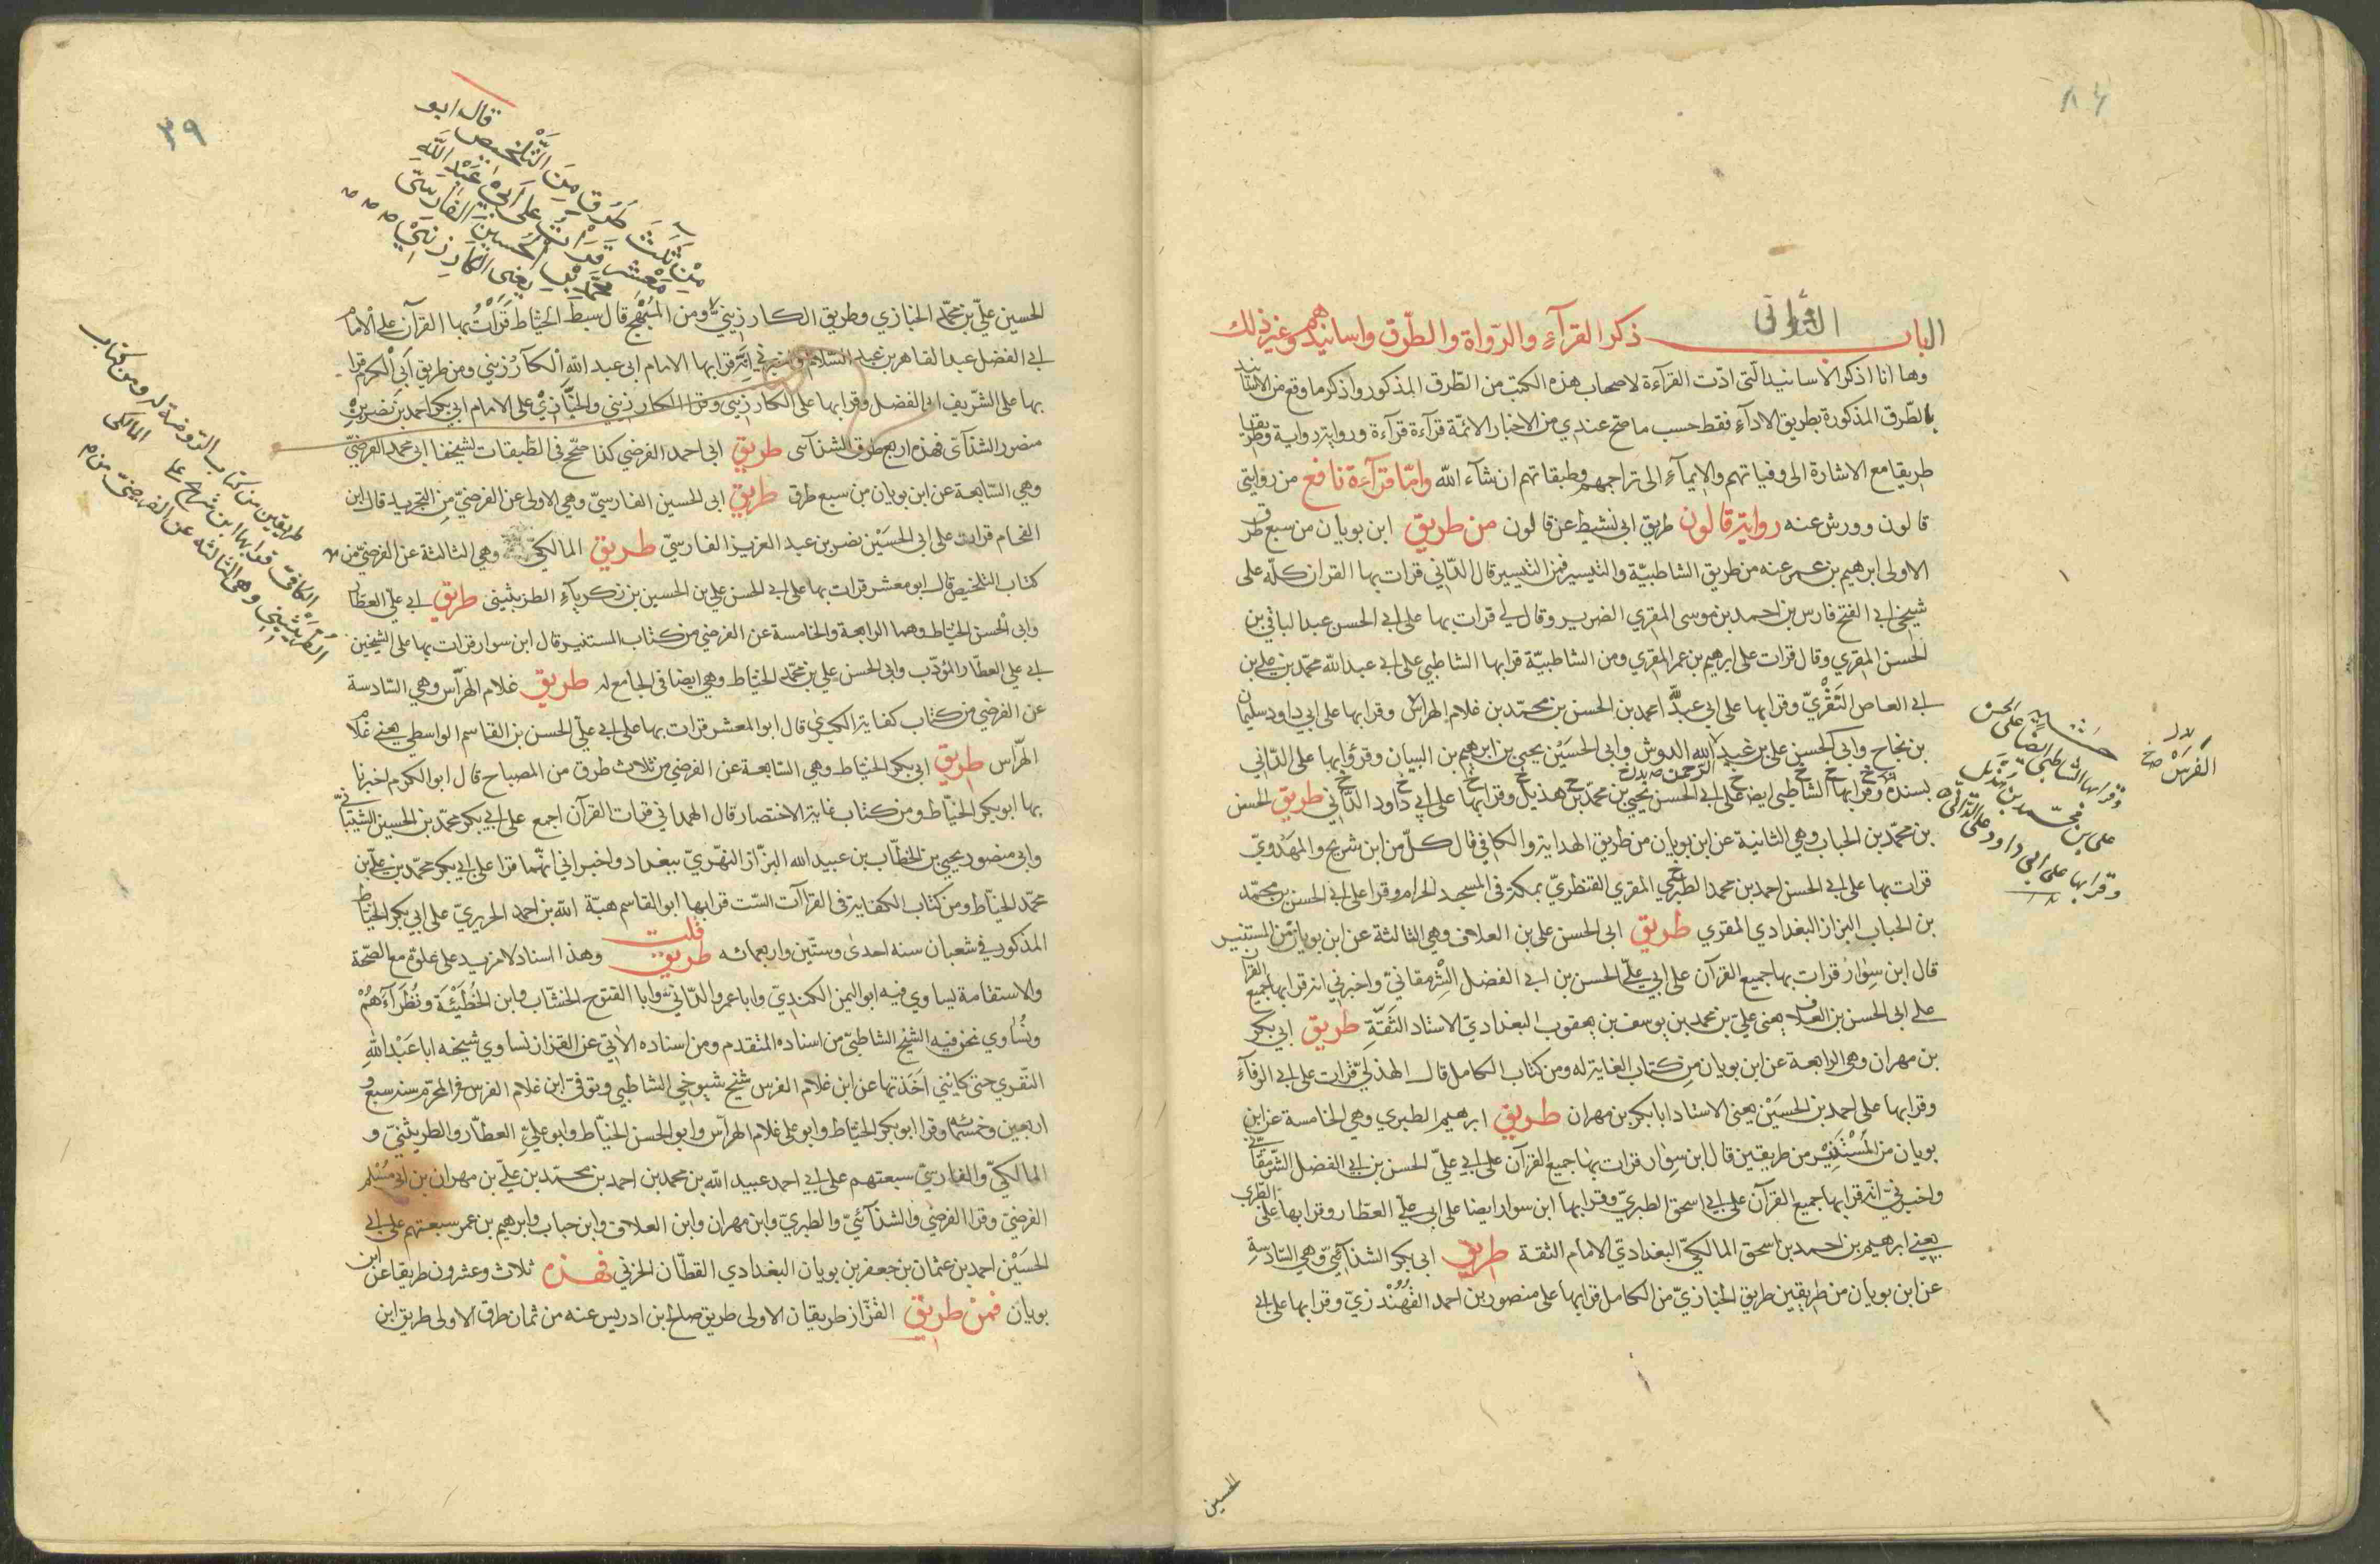 الباب الثانى ذكر القرآء والرواة والطرق واسانيدهم وغير ذلك
وها انا اذكر الاسانيد التى ادّت القرآءة لاصحاب هذه الكتب من الطّرق المذكور واذكر ما وقع من الاسانيد
بالطّرق المذكورة بطريق الادآء فقط حسب ما صحّ عندي من الاخبار الائمّة قرآءة قرآءة ورواية رواية وطريقا
طريقا مع الاشارة الى وفياتهم والايمآء الى تراجمهم وطبقاتهم ان شآء الله وامّا قرآءة نافع من روايتى
قالون وورش عنه رواية قالون طريق ابى نشيط عن قالون من طريق ابن بويان من سبع طرق
الاولى ابرهيم بن عمر عنه من طريق الشاطبيّة والتيسير فمن التيسير قال الدّاني قرات بها القران كلّه على
شيخي ابى الفتح فارس بن احمد بن موسى المقري الضرير وقال لى قرات بها على ابى الحسن عبد الباقي بن
الحسن المقري وقال قرات على ابرهيم بن عمر المقري ومن الشاطبيّة قرا بها الشاطبي على ابى عبد الله محمّد بن علي بن
ابى العاص النّفزيّ وقرا بها على ابى عبد الله احمد بن الحسن بن محمّد بن غلام الهراس وقرا بها على ابى داود سليمان
بن نجاح وابى الحسن على بن عبد الله الدوش وابى الحسين يحيى بن ابرهيم بن البيان وقرؤا بها على الدّاني
بسنده وقرا بها الشاطبي ايضا على ابى الحسن يحيى بن محمّد بن هذيل وقرا بها على ابى داود الداني طريق الحسن
بن محمّد بن الحباب وهي الثانية عن ابن بويان من طريق الهداية والكافي قال كلّ من ابن شريح والمهدويّ
قرات بها على ابى الحسن احمد بن محمد الطبري المقري القنطريّ بمكة فى المسجد الحرام وقرا على ابى الحسن بن محمّد
بن الحباب البزاز البغدادي المقري طريق ابى الحسن على بن العلاف وهي الثالثة عن ابن بويان من المستنير
قال ابن سوار قرات بها جميع القرآن على ابى علي الحسن بن ابى الفضل الشرمقاني واخبرني انه قرا بها جميع القرآن
على ابى الحسن بن العلاف يعنى عليّ بن محمد بن يوسف بن يعقوب البغدادي الاستاد الثقة طريق ابى بكر
بن مهران وهي الرابعة عن ابن بويان من كتاب الغاية له ومن كتاب الكامل قال الهذلي قرات على ابى الوفآء
وقرا بها على احمد بن الحسين يعنى الاستاد ابا بكر بن مهران طريق ابرهيم الطبري وهي الخامسة عن ابن
بويان من المستنير من طريقين قال ابن سوار قرات بها جميع القرآن على ابى عليّ الحسن بن ابى الفضل الشرمقاني
واخبرنيّ انّه قرا بها جميع القرآن على ابى اسحق الطبريّ وقرا بها ابن سوار ايضا على ابى علي العطار وقرا بها على الطبري
يعنى ابرهيم بن احمد بن اسحق المالكيّ البغداديّ الامام الثقة طريق ابى بكر الشذآئيّ وهي السّادسة
عن ابن بويان من طريقين طريق الخبازيّ من الكامل قرا بها على منصور بن احمد القهندزيّ وقرا بها على ابى
الحسين
الفرس صح
وقرا بها الشاطبي ايضا على الحسن
على بن محمّد بن هذيل
وقرا بها على ابى داود على الدّاني
٣٩
قال ابو
من ثلث طرق من التّلخيص
معشر قرات على ابى عبد الله
محمد بن الحسين الفارسيّ
يعنى الكارزينيّ
الحسين عليّ بن محمّد الخبازي وطريق الكارزينيّ ومن المبهج قال سبط الخيّاط قرات بها القرآن على الامام
ابى الفضل عبد القاهر بن عبد السّلام واخبرني انّه قرا بها الامام ابى عبد الله الكارزيني ومن طريق ابى الكرم قرا
بها على الشّريف ابى الفضل وقرا بها على الكارزيني وقرا الكارزيني والخبّازيّ على الامام ابى بكر احمد بن نصر بن
منصور الشذآئى فهذه اربع طرق للشذآئى طريق ابى احمد الفرضي كذا صحّح فى الطبقات لشيخنا ابى محمد الفرضيّ
وهي السّابعة عن ابن بويان من سبع طرق طريق ابى الحسين الفارسيّ وهي الاولى عن الفرضيّ من التجريد قال ابن
الفحام قرات على ابى الحسين نصر بن عبد العزيز الفارسيّ طريق المالكيّ وهي الثالثة عن الفرضيّ من
كتاب التلخيص قال ابو معشر قرات بها على ابى الحسن على بن الحسين بن زكريآء الطريثيثى طريق ابى عليّ العطار
وابى الحسن الخيّاط وهما الرابعة والخامسة عن الفرضي من كتاب المستنير قال ابن سوار قرات بها على الشيخين
ابى علي العطّار المؤدّب وابى الحسن علي بن محمّد الخيّاط وهي ايضا فى الجامع له طريق غلام الهرّاس وهي السّادسة
عن الفرضي من كتاب كفاية الكبرى قال ابو المعشر قرات بها على ابى عليّ الحسن بن القاسم الواسطي يعنى غلام
الهرّاس طريق ابى بكر الخيّاط وهي السّابعة عن الفرضي من ثلاث طرق من المصباح قال ابو الكرم اخبرنا
بها ابو بكر الخيّاط ومن كتاب غاية الاختصار قال الهمداني قرات القرآن اجمع على ابى بكر محمّد بن الحسين الشيبانيّ
وابى منصور يحيى بن الخطّاب بن عبيد الله البزّاز النهريّ ببغداد واخبراني انّهما قرا على ابى بكر محمّد بن علي بن
محمّد الخيّاط ومن كتاب الكفاية فى القرآآت السّت قرا بها ابو القاسم هبة الله بن احمد الحريريّ على ابى بكر الخيّاط
المذكور فى شعبان سنه احدى وستّين واربعمائه طريق قلت وهذا اسناد لا مزيد على علوّه مع الصّحّة
والاستقامة يساوي فيه ابو اليمن الكنديّ وابا عمرو الدّانيّ وابا الفتوح الخشّاب وابن الحطيئة ونظرآءهم
ونساوي نحن فيه الشيخ الشاطبيّ من اسناده المتقدم ومن اسناده الآتي عن القزاز نساوي شيخه ابا عبد الله
النّفزي حتى كانني اخذتها عن ابن غلام الفرس شيخ شيوخي الشاطبي وتوفّي ابن غلام الفرس فى المحرّم سنه سبع و
اربعين وخمسمائه وقرا ابو بكر الخيّاط وابو على غلام الهرّاس وابو الحسن الخيّاط وابو عليّ العطّار والطريثيثيّ و
المالكيّ والفارسيّ سبعتهم على ابى احمد عبيد الله بن محمد بن احمد بن محمّد بن عليّ بن مهران بن ابى مسلم
الفرضيّ وقرا الفرضي والشذآئيّ والطبريّ وابن مهران وابن العلاف وابن حباب وابرهيم بن عمر سبعتهم على ابى
الحسين احمد بن عثمان بن جعفر بن بويان البغدادي القطّان الحربي فهذه ثلاث وعشرون طريقا عن ابن
بويان فمن طريق القزّاز طريقان الاولى طريق صالح بن ادريس عنه من ثمان طرق الاولى طريق ابن
طريقين من كتاب الرّوضة له ومن كتاب
الكافى قرا بها ابن شريح على المالكى
الطريثيثي وهى الثالثه عن الفرضيّ من